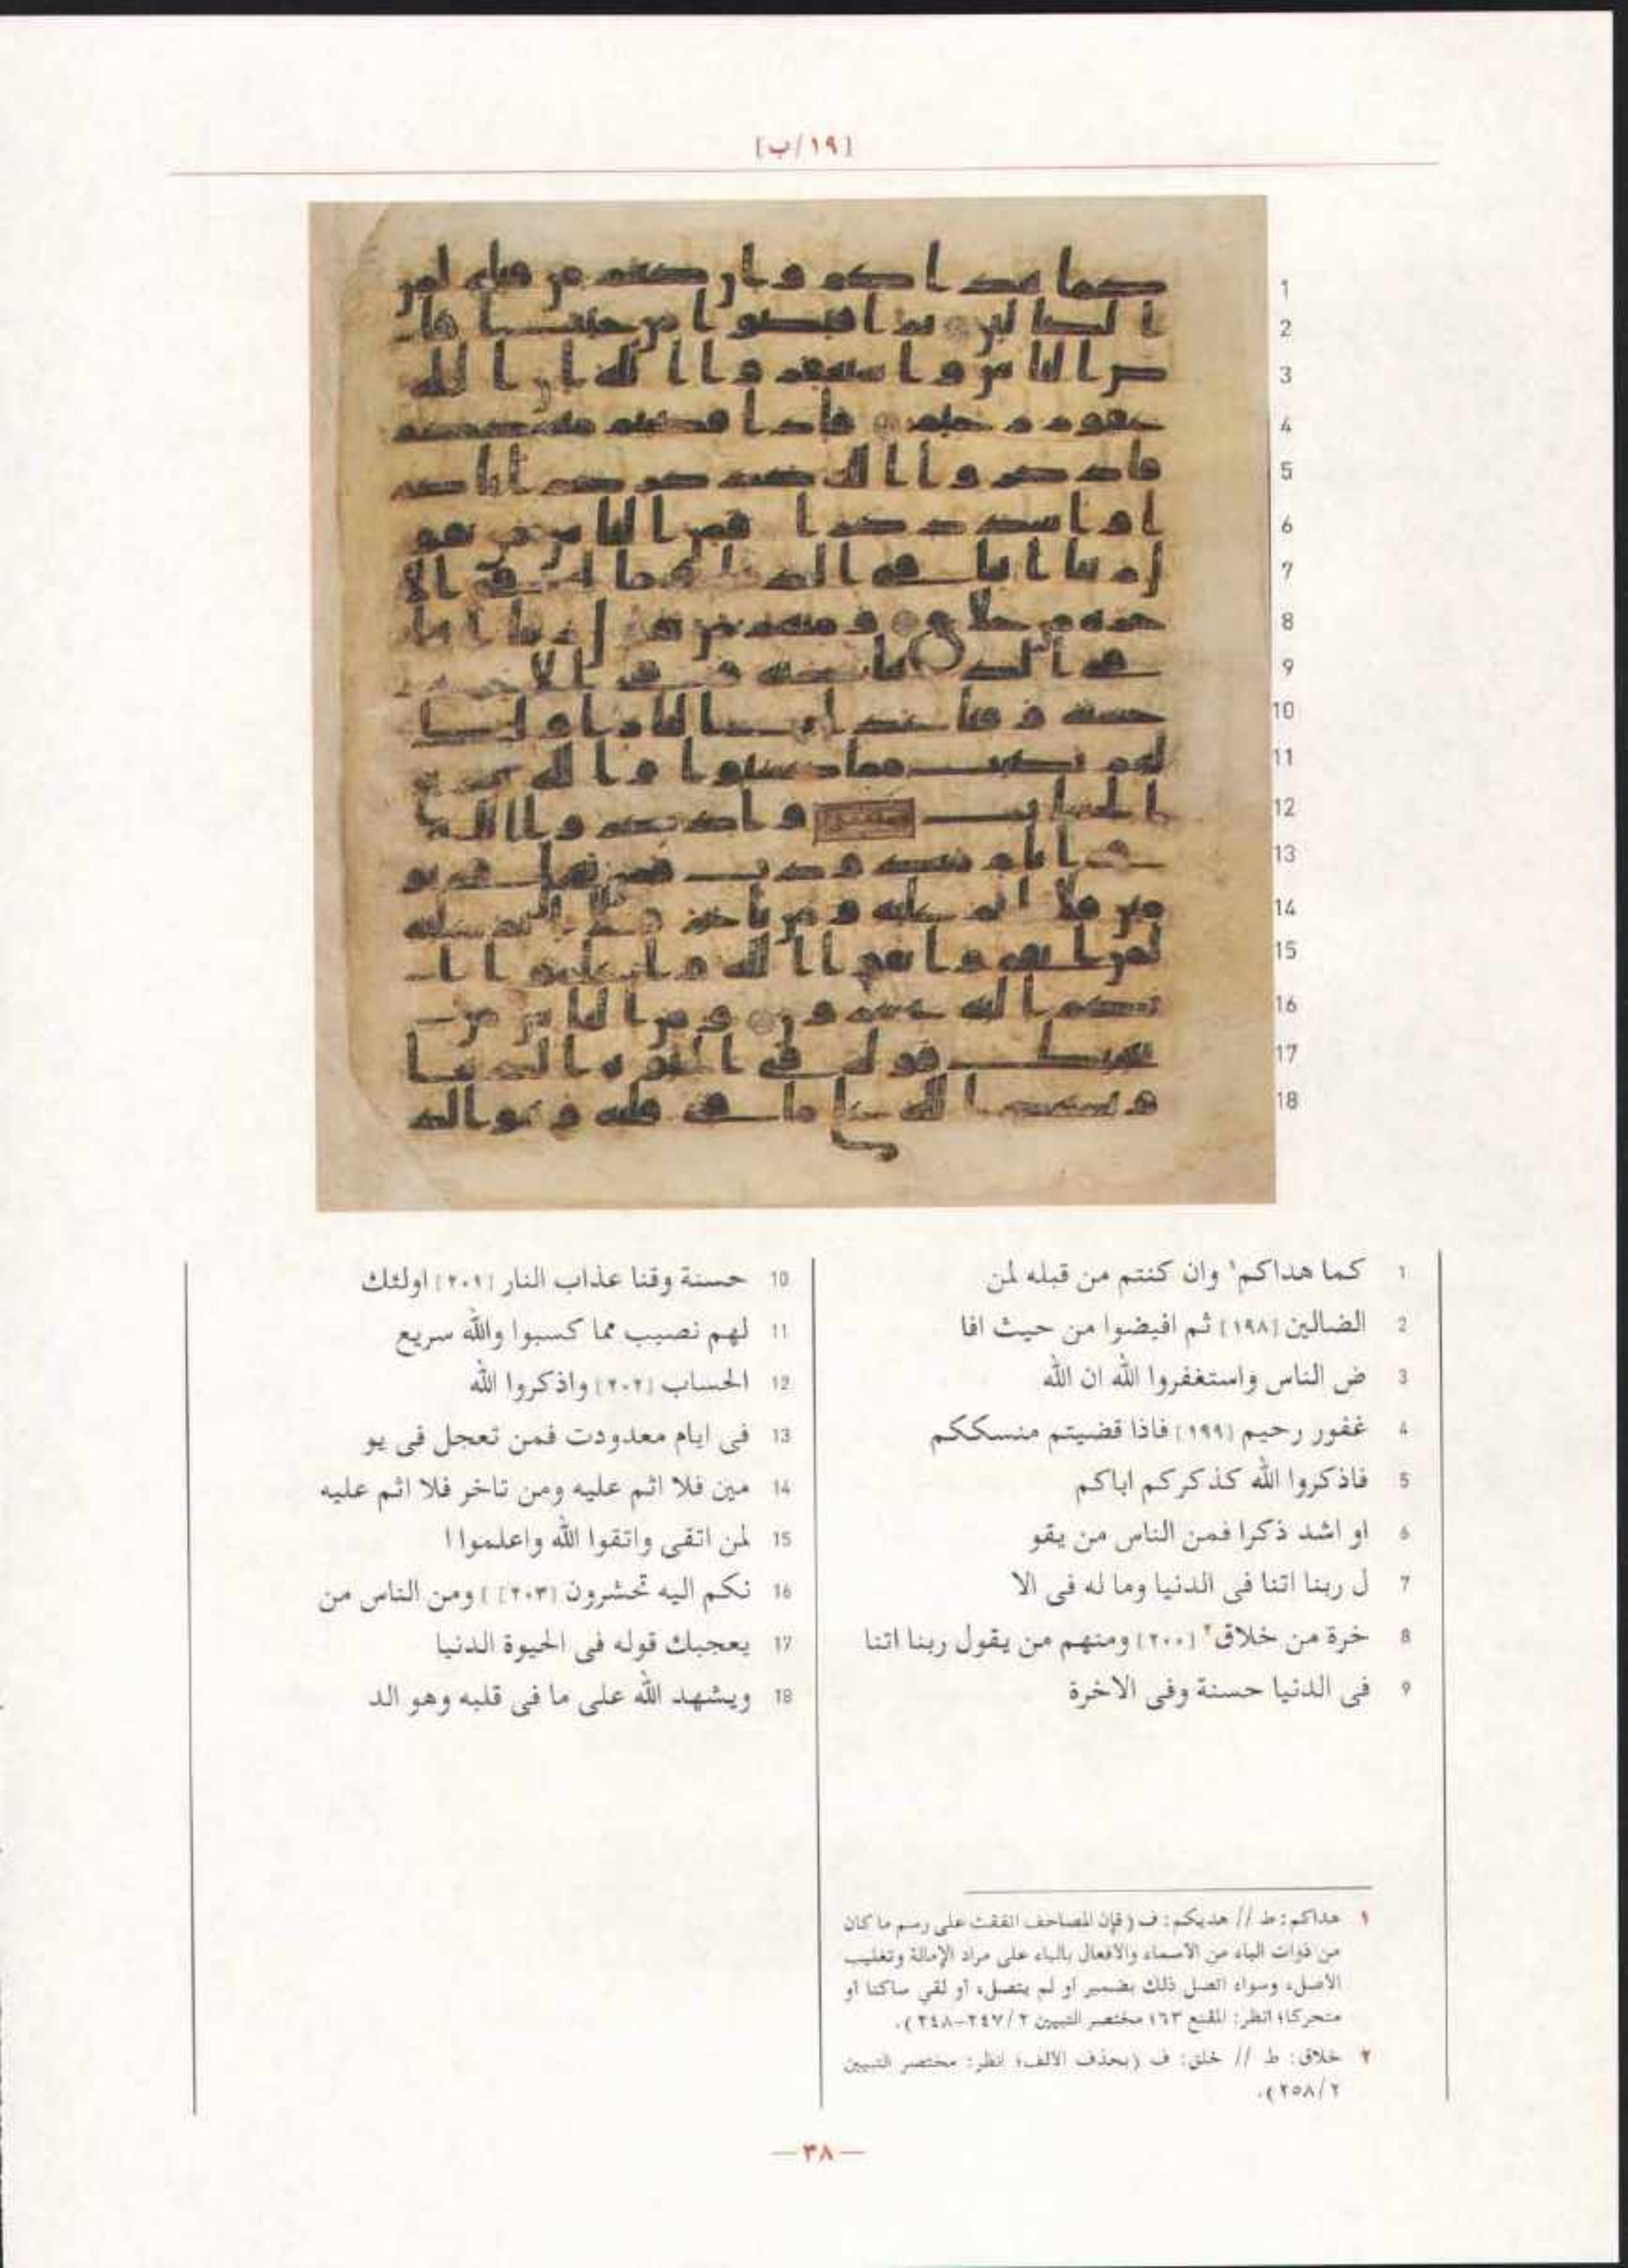 [١٩/ب]
1 كما هداكم١ وان كنتم من قبله لمن
2 الضالين [١٩٨] ثم افيضوا من حيث افا
3 ض الناس واستغفروا الله ان الله
4 غفور رحيم [١٩٩] فاذا قضيتم منسككم
5 فاذكروا الله كذكركم اباكم
6 او اشد ذكرا فمن الناس من يقو
7 ل ربنا اتنا فى الدنيا وما له فى الا
8 خرة من خلاق٢ [٢٠٠] ومنهم من يقول ربنا اتنا
9 فى الدنيا حسنة وفى الاخرة
10 حسنة وقنا عذاب النار [٢٠١] اولئك
11 لهم نصيب مما كسبوا والله سريع
12 الحساب [٢٠٢] واذكروا الله
13 فى ايام معدودت فمن تعجل فى يو
14 مين فلا اثم عليه ومن تاخر فلا اثم عليه
15 لمن اتقى واتقوا الله واعلموا ا
16 نكم اليه تحشرون [٢٠٣] ومن الناس من
17 يعجبك قوله فى الحيوة الدنيا
18 ويشهد الله على ما فى قلبه وهو الد
١ هداكم: ط // هديكم: ف (فإن المصاحف اتفقت على رسم ما كان
من ذوات الياء من الأسماء والأفعال بالياء على مراد الإمالة وتغليب
الأصل، وسواء اتصل ذلك بضمير أو لم يتصل، أو لقي ساكنا أو
متحركا؛ انظر: المقنع ٦٣؛ مختصر التبيين ٢/٢٤٧-٢٤٨).
٢ خلاق: ط // خلق: ف (بحذف الألف؛ انظر: مختصر التبيين
٢/٢٥٨).
—٣٨—